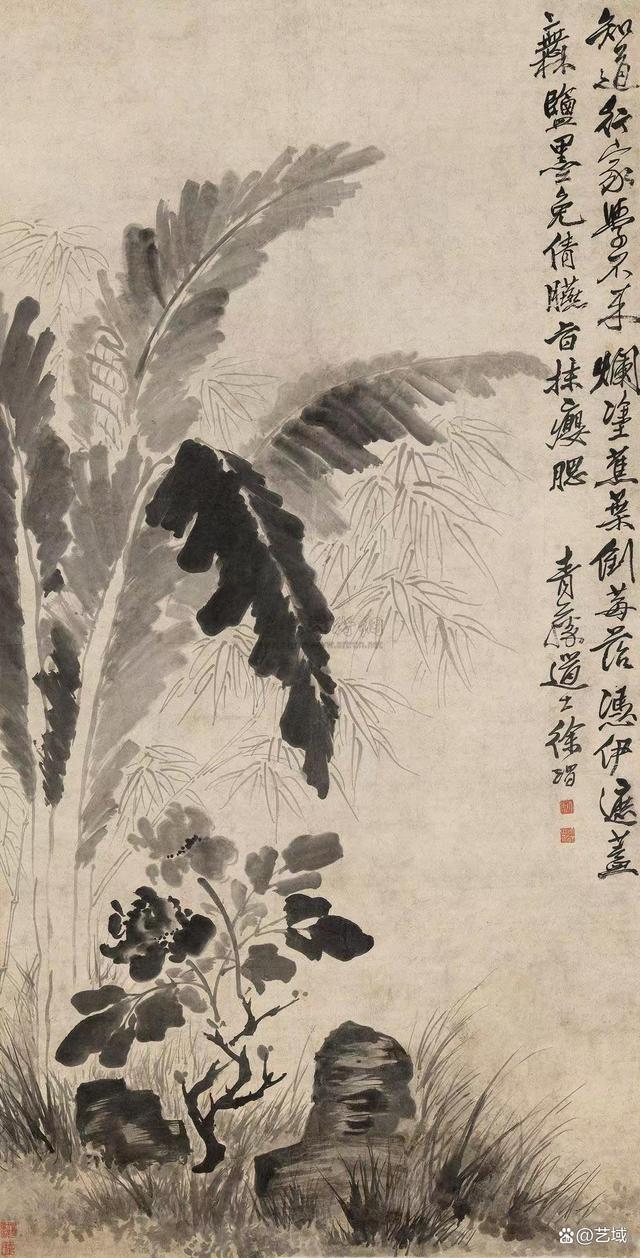 知道行家學不來爛塗蕉葉倒莓苔憑伊遮蓋
無鹽墨免倩臙旨抹癭腮 青藤道士徐渭
@艺域